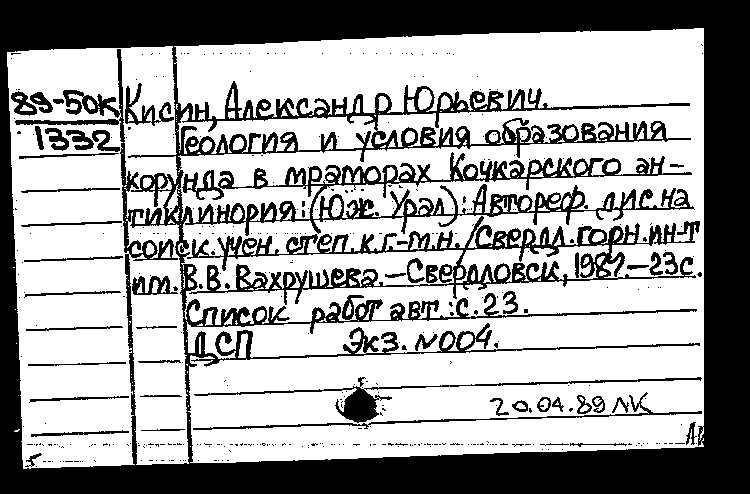 89-50К Кисин, Александр Юрьевич.
1332 Геология и условия образования
корунда в мраморах Кочкарского ан-
тиклинория: (Юж. Урал): Автореф. дис. на
соиск. учен. степ. к.г.-м.н. / Свердл. горн. ин-т
им. В.В. Вахрушева. – Свердловск, 1987. – 23 с.
Список работ авт.: с. 23.
ДСП Экз. N004.
20.04.89 ЛК